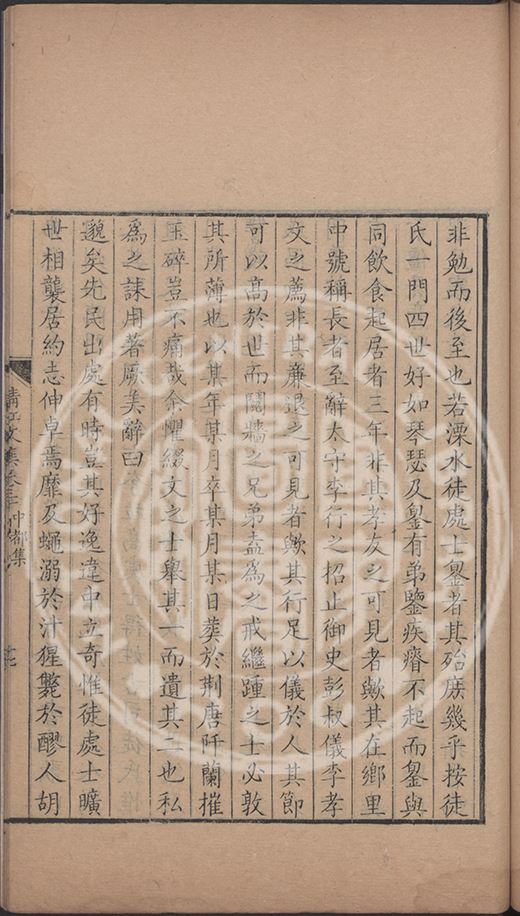 非勉而後至也若溧水徒處士鋆者其殆庶幾乎按徒
氏一門四世好如琴瑟及鋆有弟鑒疾瘠不起而鋆與
同飲食起居者三年非其孝友之可見者歟其在鄉里
中號稱長者至辭太守李行之招止御史彭叔儀李孝
文之薦非其廉退之可見者歟其行足以儀於人其節
可以高於世而鬩牆之兄弟盍為之戒繼踵之士必敦
其所薄也以某年某月卒某月某日葬於荆唐阡蘭摧
玉碎豈不痛哉余懼綴文之士舉其一而遺其二也私
為之誄用著厥美辭曰
邈矣先民出處有時豈其好逸違中立奇惟徒處士曠
世相襲居約志伸卓焉靡及蠅溺於汁猩斃於醪人胡
清江文集卷三十 中都集
十七